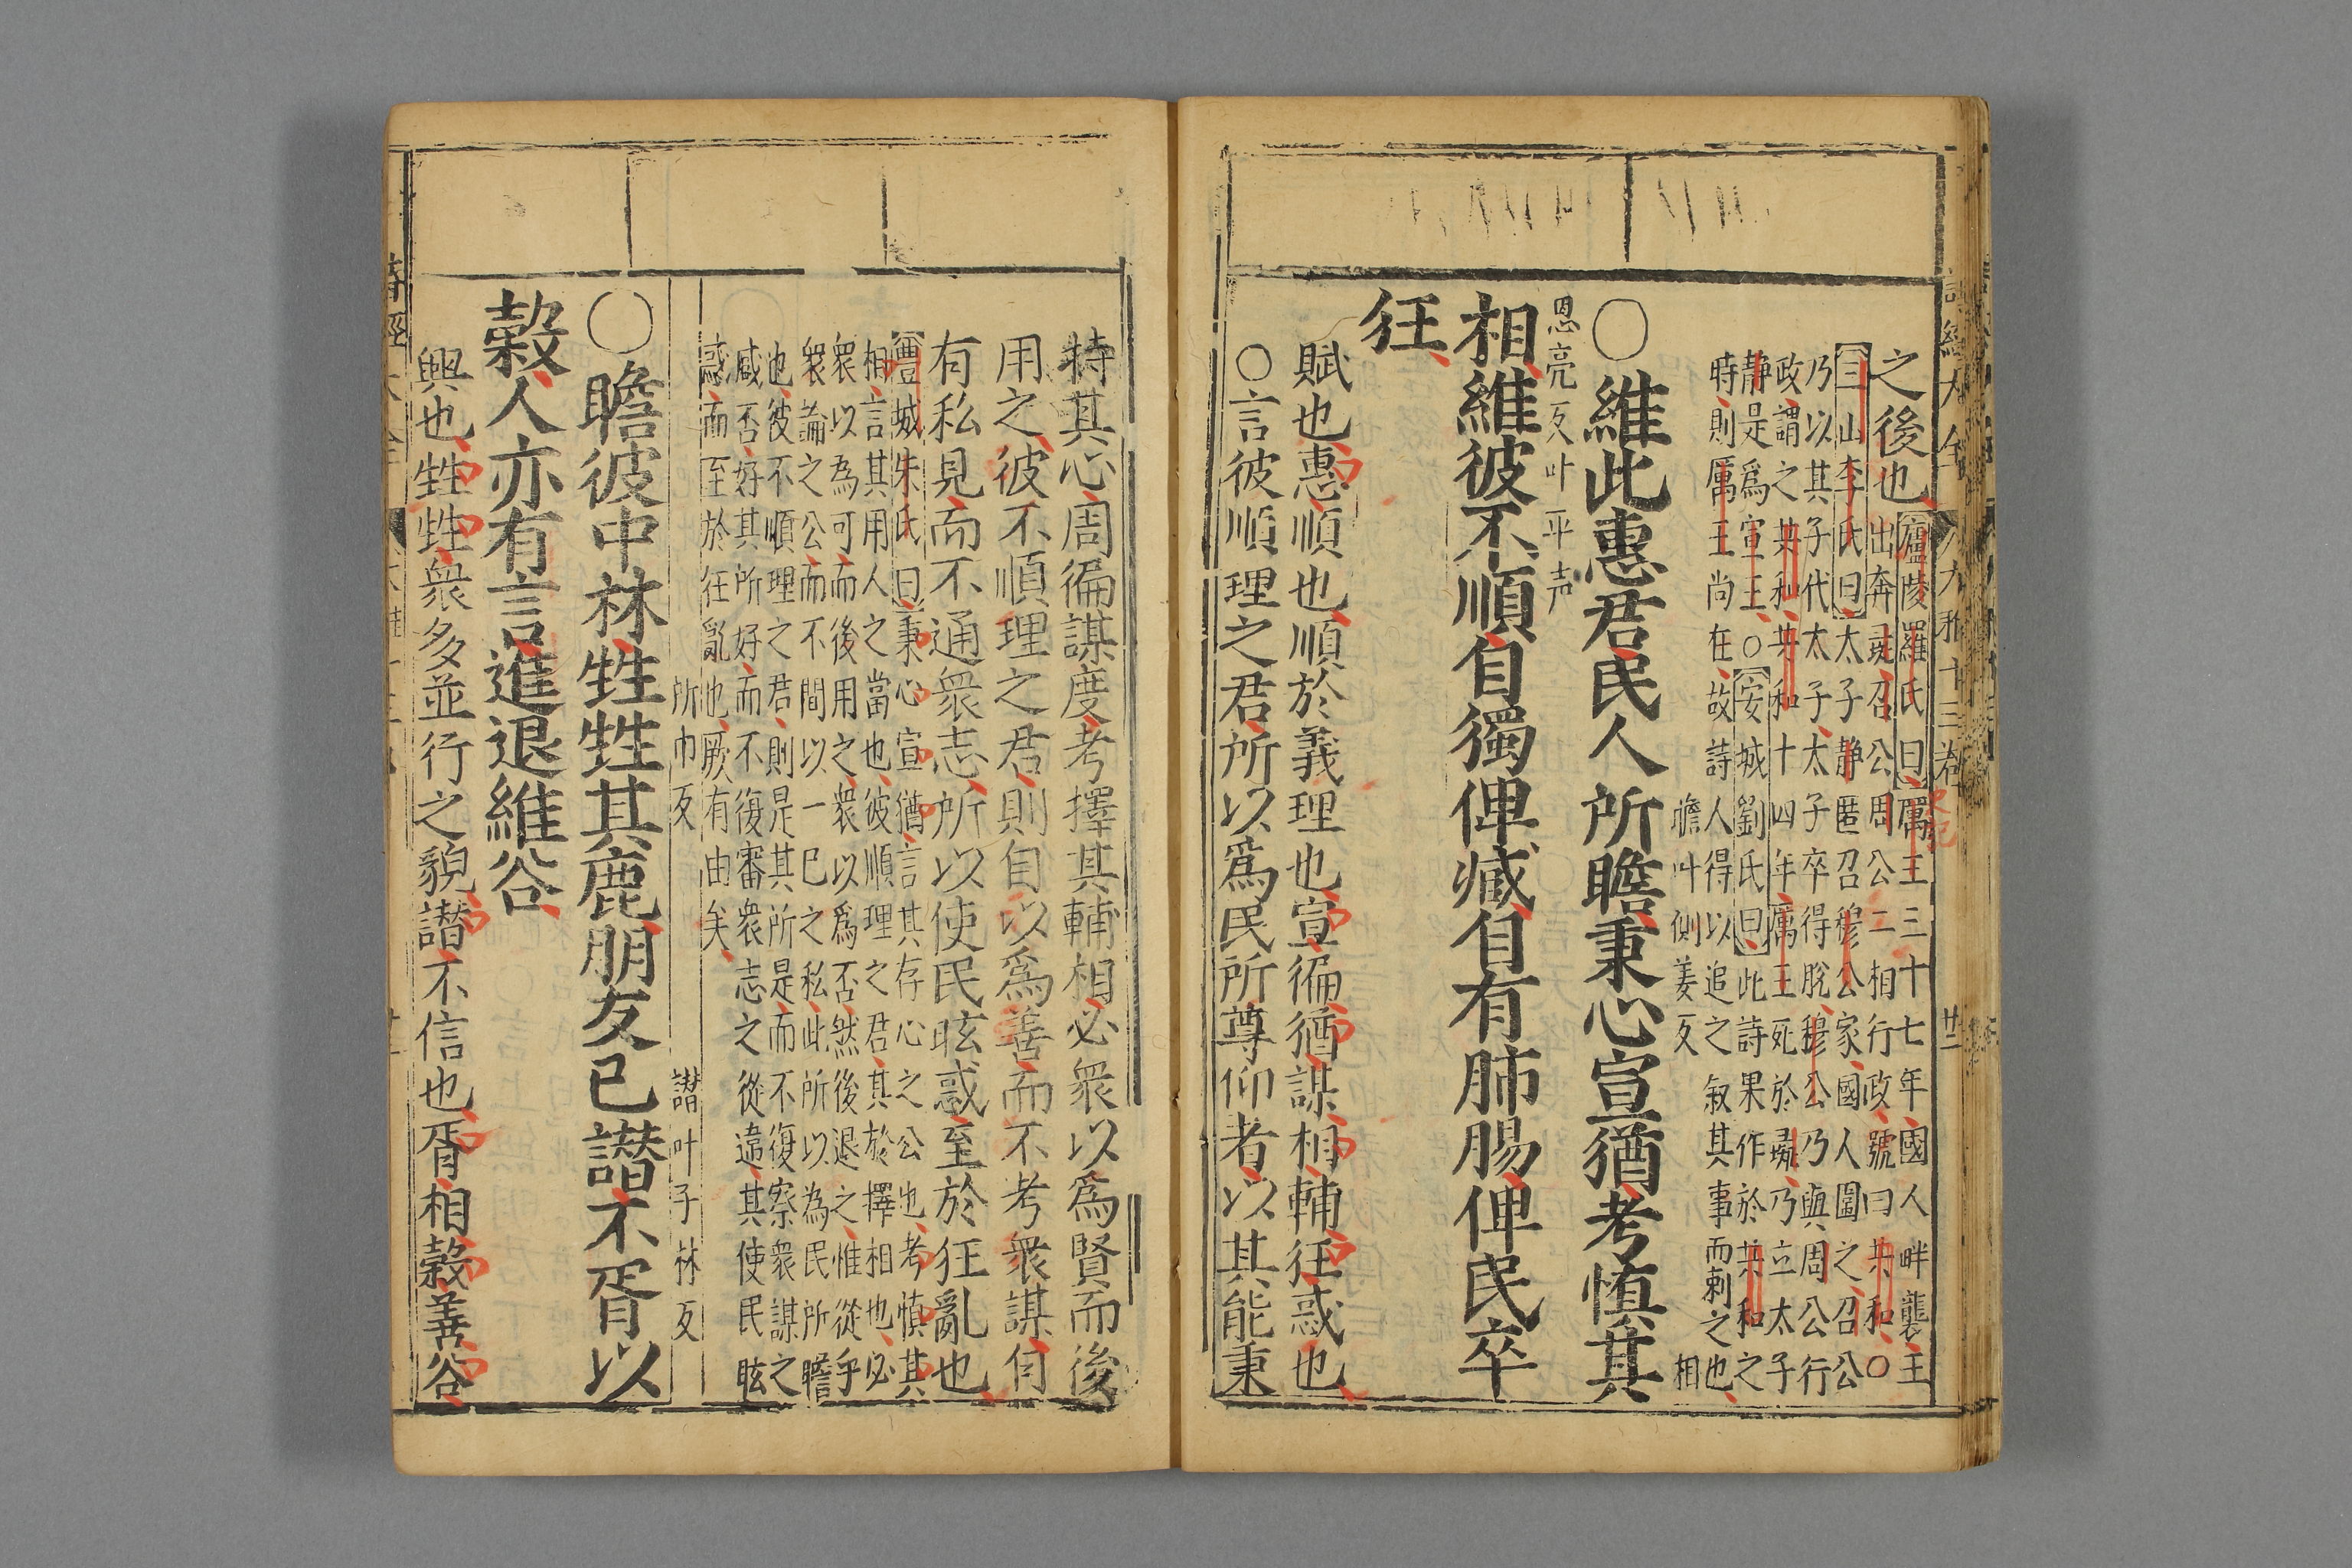 之後也廬陵羅氏曰厲王三十七年國人畔襲王
出奔彘召公周公二相行政號曰共和○
三山李氏曰太子靜匿召穆公家國人圍之召公
乃以其子代太子太子卒得脫穆公乃與周公行
政謂之共和共和十四年厲王死於彘乃立太子
靜是爲宣王○安城劉氏曰此詩果作於共和之
時則厲王尚在故詩人得以追之叙其事而刺之也
瞻叶側姜反 相
○維此惠君民人所瞻秉心宣猶考慎其
恩亮反叶平声
相維彼不順自獨俾臧自有肺腸俾民卒
狂
賦也惠順也順於義理也宣徧猶謀相輔狂惑也
○言彼順理之君所以爲民所尊仰者以其能秉
持其心周徧謀度考擇其輔相必衆以爲賢而後
用之彼不順理之君則自以爲善而不考衆謀自
有私見而不通衆志所以使民眩惑至於狂亂也
豐城朱氏曰秉心宣猶言其存心之公也考慎其
相言其用人之當也彼順理之君其於擇相也必
衆以為可而後用之衆以爲否然後退之惟從乎
衆論之公而不間以一己之私此所以為民所瞻
也彼不順理之君則是其所是而不復察衆謀之
臧否好其所好而不復審衆志之從違其使民眩
惑而至於狂亂也厥有由矣
所巾反 譖叶子林反
○瞻彼中林甡甡其鹿朋友已譖不胥以
穀人亦有言進退維谷
興也甡甡衆多並行之貌譖不信也胥相穀善谷